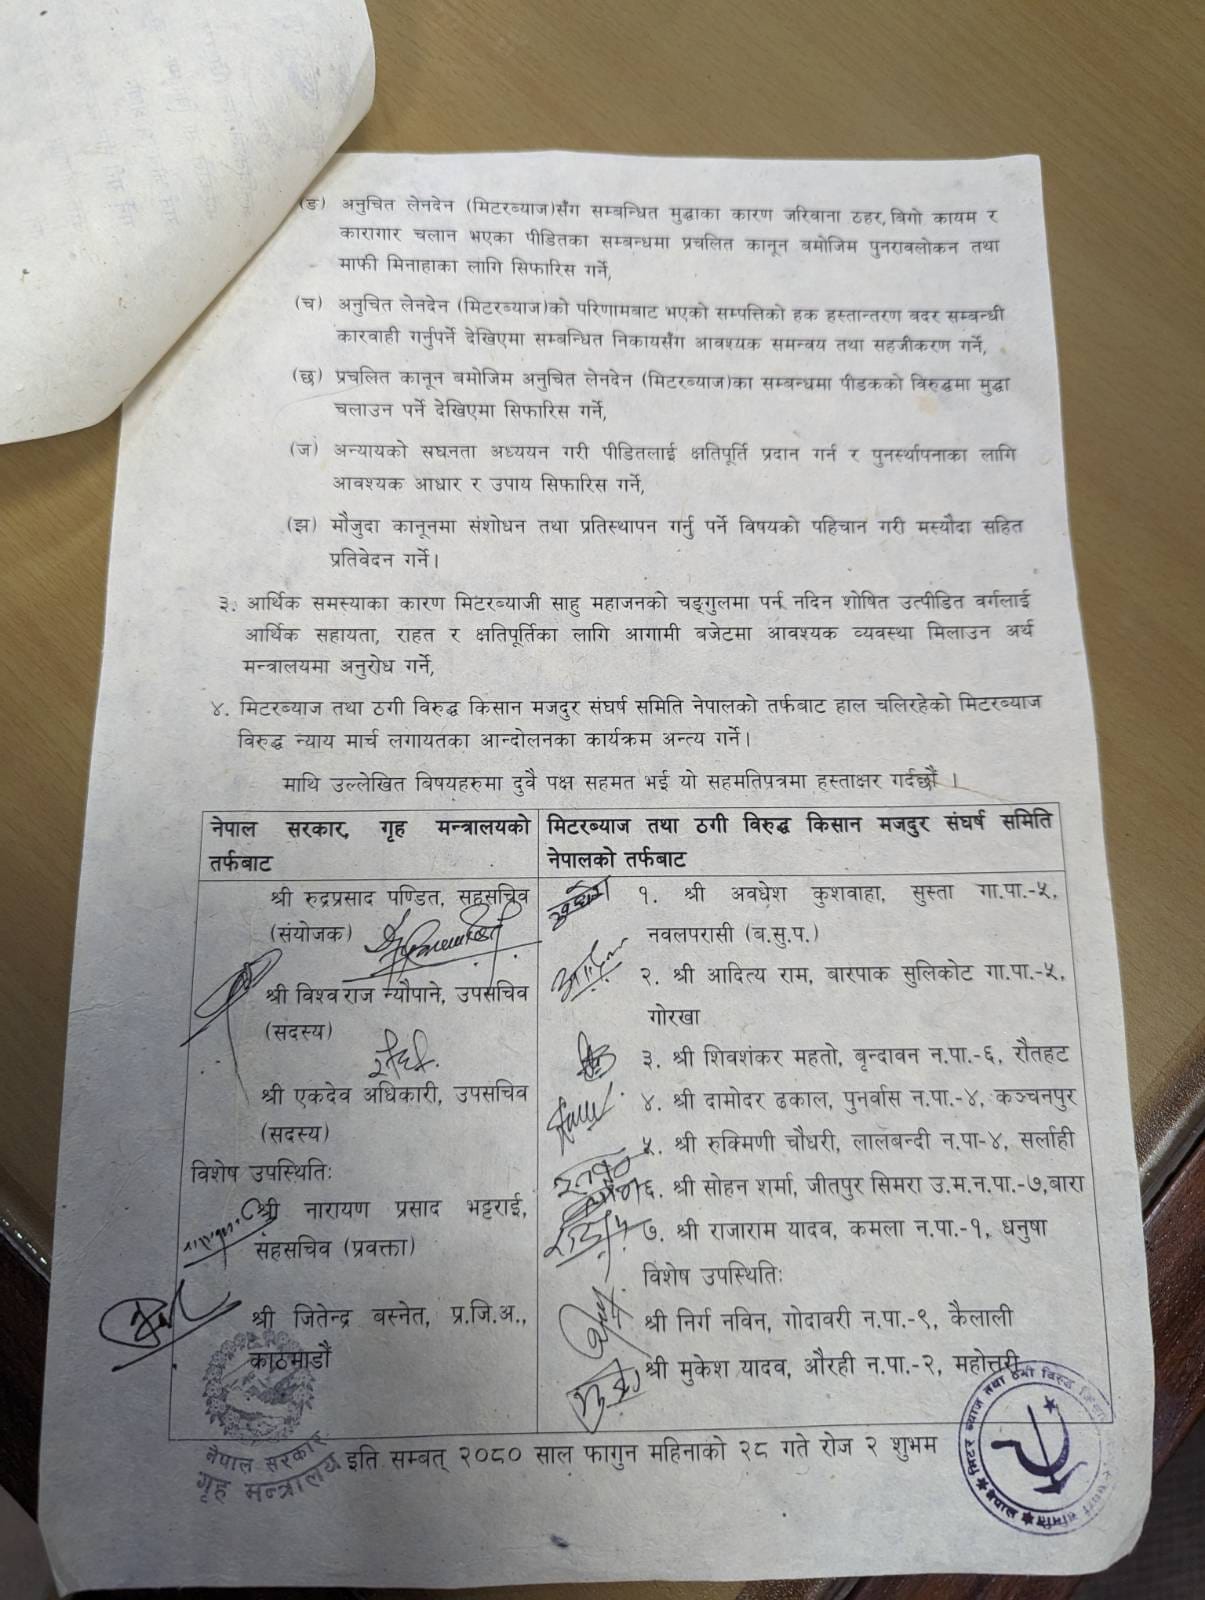 (ङ) अनुचित लेनदेन (मिटरब्याज)सँग सम्बन्धित मुद्दाका कारण जरिवाना ठहर, बिगो कायम र
कारागार चलान भएका पीडितका सम्बन्धमा प्रचलित कानून बमोजिम पुनरावलोकन तथा
माफी मिनाहाका लागि सिफारिस गर्ने,
(च) अनुचित लेनदेन (मिटरब्याज)को परिणामबाट भएको सम्पत्तिको हक हस्तान्तरण बदर सम्बन्धी
कारवाही गर्नुपर्ने देखिएमा सम्बन्धित निकायसँग आवश्यक समन्वय तथा सहजीकरण गर्ने,
(छ) प्रचलित कानून बमोजिम अनुचित लेनदेन (मिटरब्याज)का सम्बन्धमा पीडकको विरुद्धमा मुद्धा
चलाउन पर्ने देखिएमा सिफारिस गर्ने,
(ज) अन्यायको सघनता अध्ययन गरी पीडितलाई क्षतिपूर्ति प्रदान गर्न र पुनर्स्थापनाका लागि
आवश्यक आधार र उपाय सिफारिस गर्ने,
(झ) मौजुदा कानूनमा संशोधन तथा प्रतिस्थापन गर्नु पर्ने विषयको पहिचान गरी मस्यौदा सहित
प्रतिवेदन गर्ने।
३. आर्थिक समस्याका कारण मिटरब्याजी साहु महाजनको चङ्गुलमा पर्न नदिन शोषित उत्पीडित वर्गलाई
आर्थिक सहायता, राहत र क्षतिपूर्तिका लागि आगामी बजेटमा आवश्यक व्यवस्था मिलाउन अर्थ
मन्त्रालयमा अनुरोध गर्ने,
४. मिटरब्याज तथा ठगी विरुद्ध किसान मजदुर संघर्ष समिति नेपालको तर्फबाट हाल चलिरहेको मिटरब्याज
विरुद्ध न्याय मार्च लगायतका आन्दोलनका कार्यक्रम अन्त्य गर्ने।
माथि उल्लेखित बिषयहरुमा दुवै पक्ष सहमत भई यो सहमतिपत्रमा हस्ताक्षर गर्दछौं ।
नेपाल सरकार, गृह मन्त्रालयको
तर्फबाट
श्री रुद्रप्रसाद पण्डित, सहसचिव
(संयोजक)
श्री विश्वराज न्यौपाने, उपसचिव
(सदस्य)
श्री एकदेव अधिकारी, उपसचिव
(सदस्य)
विशेष उपस्थितिः
श्री नारायण प्रसाद भट्टराई,
सहसचिव (प्रवक्ता)
श्री जितेन्द्र बस्नेत, प्र.जि.अ.,
काठमाडौं
मिटरब्याज तथा ठगी विरुद्ध किसान मजदुर संघर्ष समिति
नेपालको तर्फबाट
१. श्री अवधेश कुशवाहा, सुस्ता गा.पा.-५,
नवलपरासी (ब.सु.प.)
२. श्री आदित्य राम, बारपाक सुलिकोट गा.पा.-५,
गोरखा
३. श्री शिवशंकर महतो, बृन्दावन न.पा.-६, रौतहट
४. श्री दामोदर ढकाल, पुनर्वास न.पा.-४, कञ्चनपुर
५. श्री रुक्मिणी चौधरी, लालबन्दी न.पा-४, सर्लाही
६. श्री सोहन शर्मा, जीतपुर सिमरा उ.म.न.पा.-७,बारा
७. श्री राजाराम यादव, कमला न.पा.-१, धनुषा
विशेष उपस्थितिः
श्री निर्ग नविन, गोदावरी न.पा.-९, कैलाली
श्री मुकेश यादव, औरही न.पा.-२, महोत्तरी
इति सम्बत् २०८० साल फागुन महिनाको २८ गते रोज २ शुभम
नेपाल सरकार
गृह मन्त्रालय
मिटर ब्याज तथा ठगी विरुद्ध
समिति नेपाल